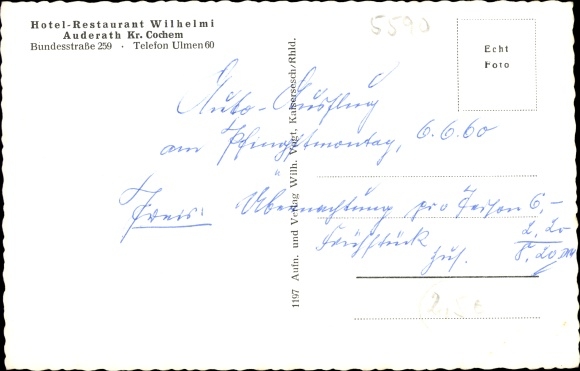 Hotel-Restaurant Wilhelmi
Auderath Kr. Cochem
Bundesstraße 259 · Telefon Ulmen 60
5590
Echt
Foto
Auto-Ausflug
am Pfingstmontag, 6.6.60
Preis: Übernachtung pro Person 6,–
Frühstück 2,20
zus. 8,20 DM
1197 Aufn. und Verlag Wilh. Vogt, Kaisersesch/Rhld.